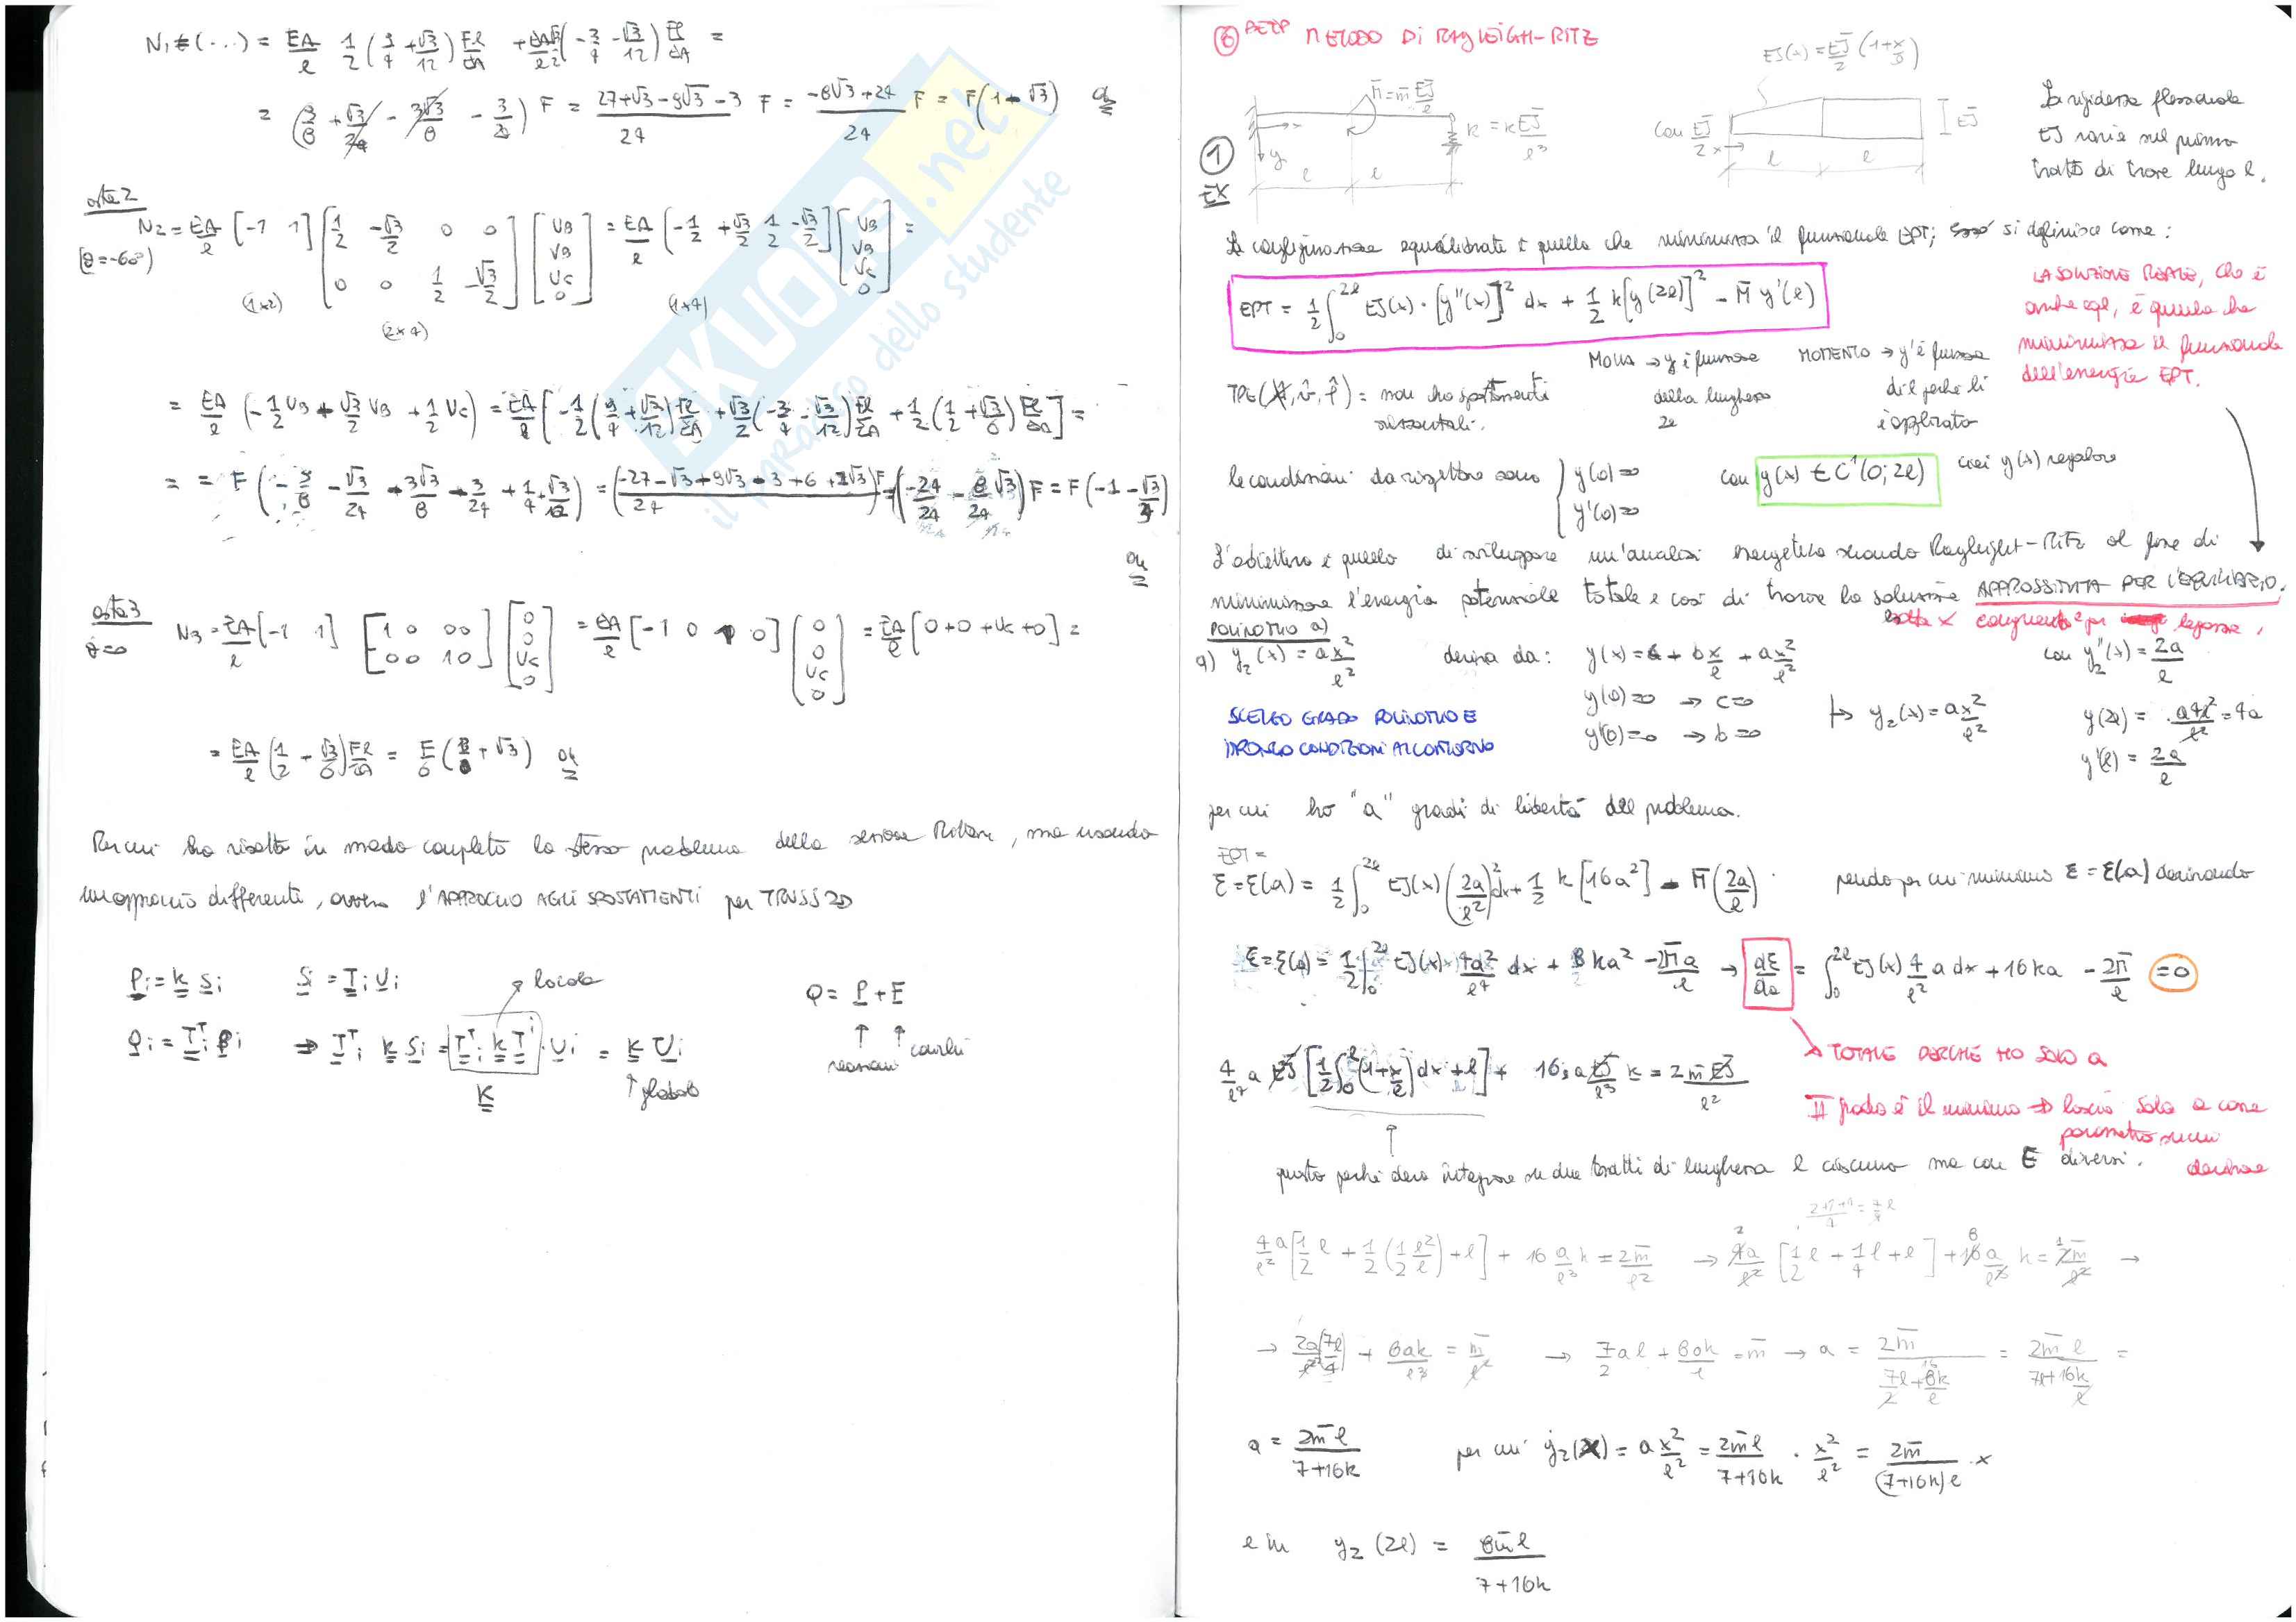 N₁ = (...) = EA/l 1/2 (9/4 + √3/12) Fl/EA + EA√3/l2 (-3/4 - √3/12) Fl/EA =
= (9/8 + √3/24 - 3√3/8 - 3/24) F = 27+√3-9√3-3/24 F = -8√3+24/24 F = F(1-√3) ok
asta 2
N₂ = EA/l [-1 1] [1/2 -√3/2 0 0; 0 0 1/2 -√3/2] [UB VB UC 0] = EA/l [-1/2 +√3/2 1/2 -√3/2] [UB VB UC 0] =
(θ=-60°)
(1x2) (2x4) (1x4)
= EA/l (-1/2 UB + √3/2 VB + 1/2 UC) = EA/l [-1/2 (9/4 + √3/12) Fl/EA + √3/2 (-3/4 - √3/12) Fl/EA + 1/2 (1/2 + √3/6) Fl/EA] =
asta 3
θ=0
N₃ = EA/l [-1 1] [1 0 0 0; 0 0 1 0] [0 0 UC 0] = EA/l [-1 0 1 0] [0 0 UC 0] = EA/l [0+0+UC+0] =
= EA/l (1/2 + √3/6) Fl/EA = F/6 (3+√3) ok
Per cui ho risolto in modo completo lo stesso problema della sezione Ritter, ma usando
un approccio differente, ovvero l'APPROCCIO AGLI SPOSTAMENTI per TRUSS 2D
Pi = k Si Si = Ti Ui locale Q = P + F
Qi = Tiᵀ Pi → Tiᵀ k Si = Tiᵀ k Ti · Ui = K Ui reazioni carichi
K globale
SKUOLA.net
il paradiso dello studente
⑥ METODO DI RAYLEIGH-RITZ
EJ(x) = EJ/2 (1+x/l)
M = m EJ/l
k = k EJ/l³
x y l l
con EJ/2 x l l EJ
La rigidezza flessionale
EJ varia nel primo
tratto di trave lungo l.
① EX
La configurazione equilibrata è quella che minimizza il funzionale EPT; si definisce come:
EPT = 1/2 ∫₀²ˡ EJ(x)·[y''(x)]² dx + 1/2 k[y(2l)]² - M y'(l)
LA SOLUZIONE REALE, che è
anche eql, è quella che
minimizza il funzionale
dell'energia EPT.
MOLLA → y è funzione
della lunghezza
2l
MOMENTO → y' è funzione
di l perché lì
è applicato
non ho spostamenti
orizzontali.
le condizioni da rispettare sono { y(0)=0 y'(0)=0 con y(x) ∈ C¹(0;2l) cioè y(x) regolare
L'obiettivo è quello di sviluppare un'analisi energetica secondo Rayleight-Ritz al fine di
minimizzare l'energia potenziale totale e così di trovare la soluzione APPROSSIMATA PER L'EQUILIBRIO.
esatta x congruenza e per legame.
POLINOMIO a)
a) y₂(x) = a x²/l² deriva da: y(x) = c + b x/l + a x²/l² con y₂''(x) = 2a/l
y(0)=0 → c=0 ↦ y₂(x) = a x²/l² y(2l) = a4l²/l² = 4a
SCELGO GRADO POLINOMIO E
IMPONGO CONDIZIONI AL CONTORNO
y'(0)=0 → b=0 y'(l) = 2a/l
per cui ho "a" gradi di libertà del problema.
EPT =
ℰ = ℰ(a) = 1/2 ∫₀²ˡ EJ(x) (2a/l²)² dx + 1/2 k [16a²] - M (2a/l) per cui minimizzo ℰ = ℰ(a) derivando
ℰ = ℰ(a) = 1/2 ∫₀²ˡ EJ(x) 4a²/l⁴ dx + 8 ka² - 2Ma/l → dℰ/da = ∫₀²ˡ EJ(x) 4/l² a dx + 16ka - 2M/l = 0
4/l⁴ a EJ [1/2 ∫₀ˡ (1+x/l) dx + l] + 16 a EJ/l³ k = 2 m EJ/l²
TOTALE PERCHÉ HO SOLO a
II grado è il minimo → lascio solo a come
parametro su cui
derivare
questo perché devo integrare su due tratti di lunghezza l ciascuno ma con E diversi.
2+1+4/4 = 7/4 l
4/l² a [1/2 l + 1/2 (1/2 l²/l) + l] + 16 a/l³ k = 2m/l² → 4a/l² [1/2 l + 1/4 l + l] + 16 a/l³ k = 2m/l² →
→ 2a/l² (7l/4) + 8ak/l³ = m/l² → 7/2 al + 8ak/l = m → a = 2m / (7l/2 + 8k/l) = 2m l / (7l+16k/l) =
a = 2ml/7+16k per cui y₂(x) = a x²/l² = 2ml/7+16k · x²/l² = 2m/(7+16k)l · x
e in y₂(2l) = 8ml/7+16k